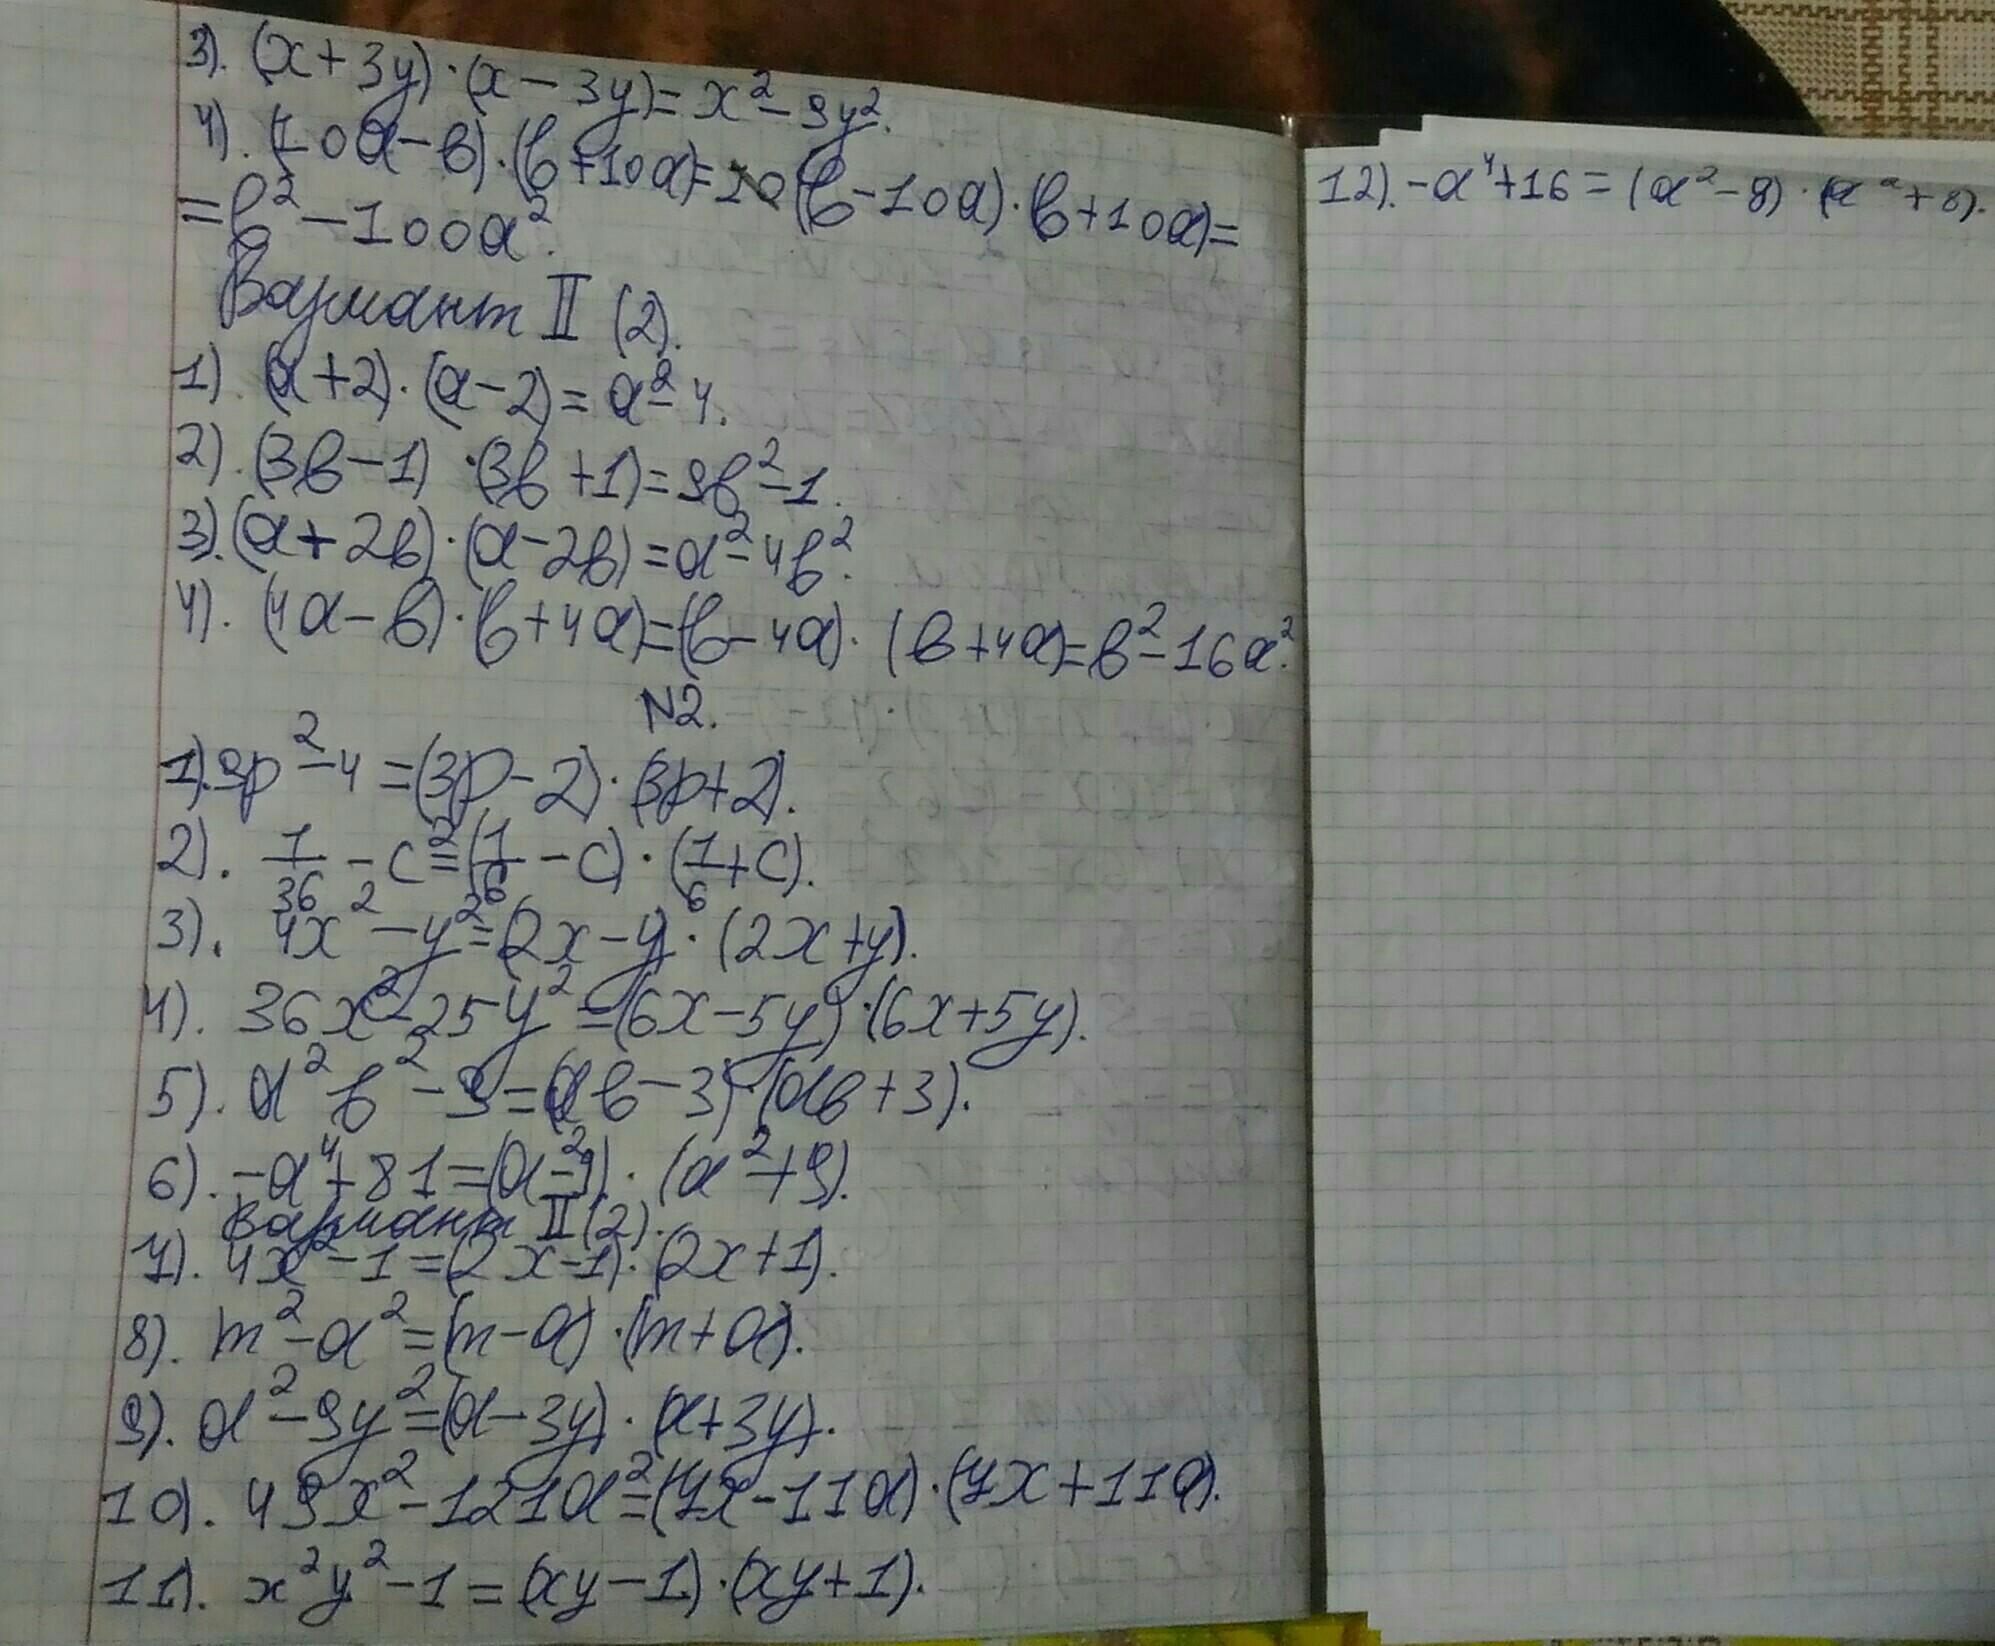 3). (x+3y)·(x-3y)=x²-9y².
4). (10a-b)·(b+10a)=(b-10a)·(b+10a)=
=b²-100a².
Вариант II (2).
1) (a+2)·(a-2)=a²-4.
2). (3b-1)·(3b+1)=9b²-1.
3). (a+2b)·(a-2b)=a²-4b².
4). (4a-b)·(b+4a)=(b-4a)·(b+4a)=b²-16a².
N2.
1). 9p²-4=(3p-2)·(3p+2).
2). 1/36-c²=(1/6-c)·(1/6+c).
3). 4x²-y²=(2x-y)·(2x+y).
4). 36x²-25y²=(6x-5y)·(6x+5y).
5). a²b²-9=(ab-3)·(ab+3).
6). -a⁴+81=(a²-9)·(a²+9).
Вариант II (2).
7). 4x²-1=(2x-1)·(2x+1).
8). m²-a²=(m-a)·(m+a).
9). a²-9y²=(a-3y)·(a+3y).
10). 49x²-121a²=(7x-11a)·(7x+11a).
11). x²y²-1=(xy-1)·(xy+1).
12). -a⁴+16=(a²-8)·(a²+8).